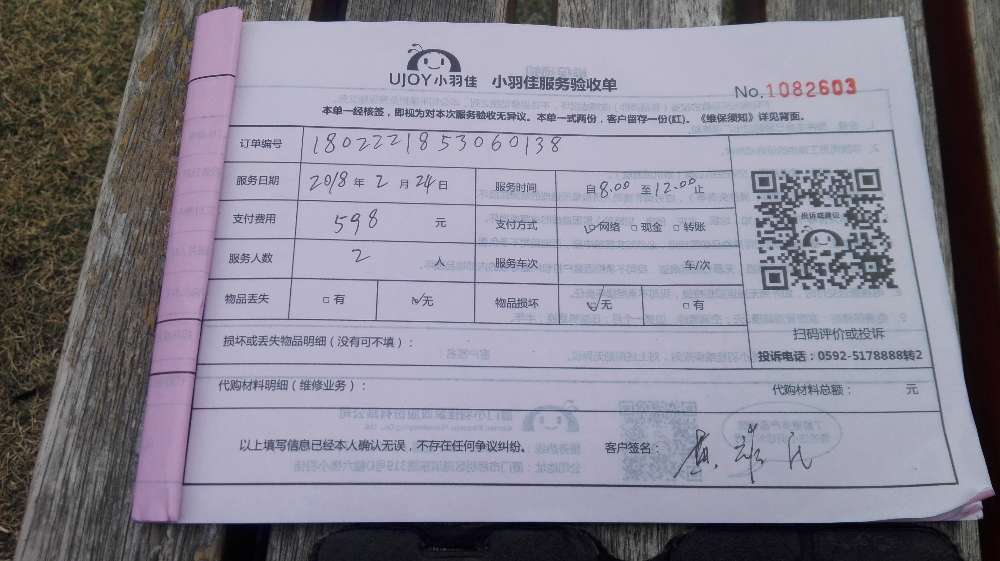 UJOY小羽佳 小羽佳服务验收单
No.1082603
本单一经核签，即视为对本次服务验收无异议。本单一式两份，客户留存一份(红)。《维保须知》详见背面。
订单编号 1802221853060138
服务日期 2018年2月24日 服务时间 自8.00至12.00止
投诉或建议
支付费用 598 元 支付方式 ☑网络 □现金 □转账
服务人数 2 人 服务车次 车/次
物品丢失 □有 ☑无 物品损坏 ☑无 □有
扫码评价或投诉
损坏或丢失物品明细（没有可不填）：
投诉电话：0592-5178888转2
代购材料明细（维修业务）： 代购材料总额： 元
以上填写信息已经本人确认无误，不存在任何争议纠纷。 客户签名：